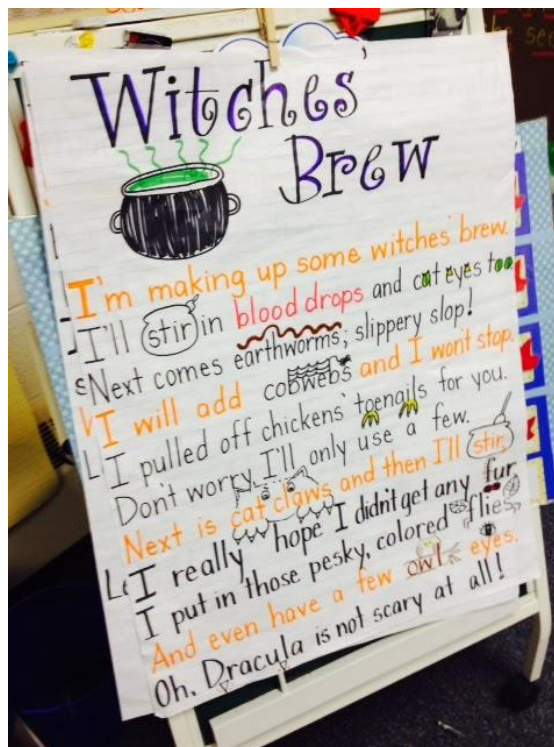 Witches'
Brew
I'm making up some witches' brew.
I'll stir in blood drops and cat eyes too
Next comes earthworms, slippery slop!
I will add cobwebs and I wont stop.
I pulled off chickens' toenails for you.
Don't worry, I'll only use a few.
Next is cat claws and then I'll stir.
I really hope I didn't get any fur.
I put in those pesky, colored flies
And even have a few owl eyes.
Oh. Dracula is not scary at all!